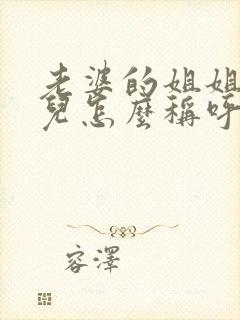 老婆的姐姐
兒怎麼稱呼
容澤